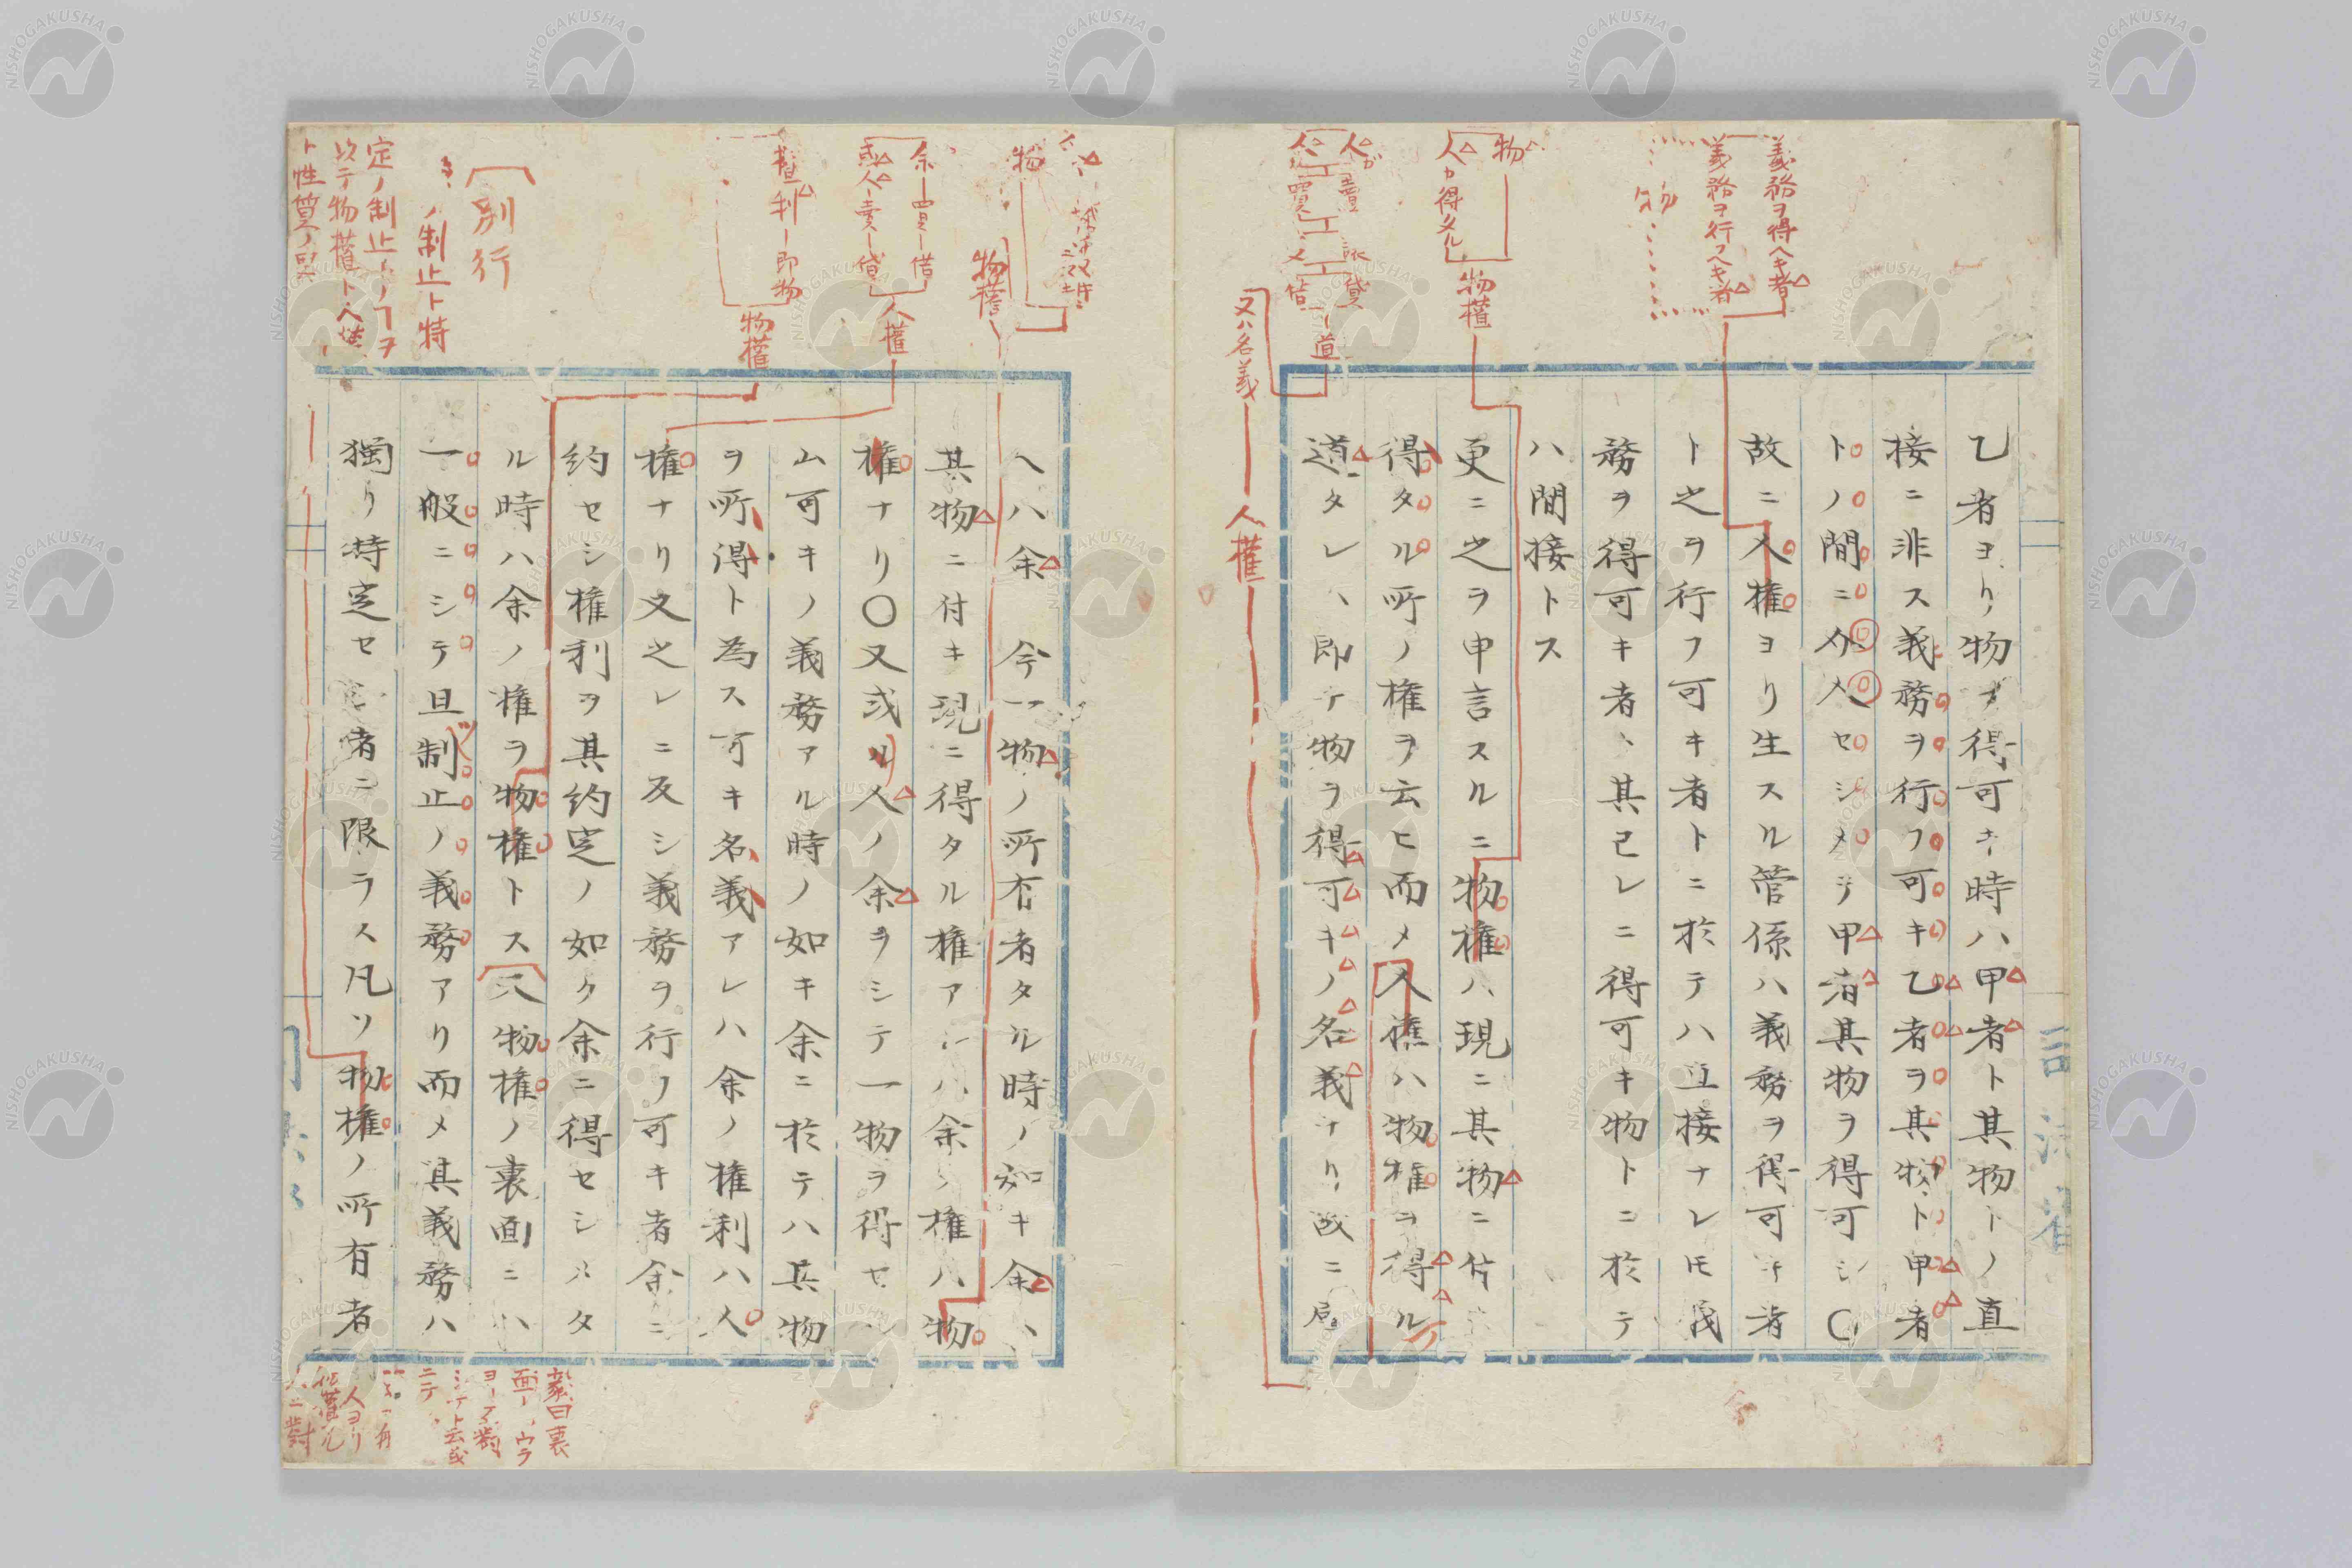 乙者ヨリ物ヲ得可キ時ハ甲者ト其物トノ直
接ニ非ス義務ヲ行フ可キ乙者ヲ其物ト甲者
トノ間ニ介入セシメテ甲者其物ヲ得可シ〇
故ニ人権ヨリ生スル管係ハ義務ヲ得可キ者
ト之ヲ行フ可キ者トニ於テハ直接ナレ𪜈義
務ヲ得可キ者、其己レニ得可キ物トニ於テ
ハ間接トス
更ニ之ヲ申言スルニ物権ハ現ニ其物ニ付
得タル所ノ権ヲ云ヒ而メ人権ハ物権ヲ得ル
道タレハ即チ物ヲ得可キノ名義ナリ故ニ
義務ヲ得ヘキ者
義務ヲ行フヘキ者
物
物
人カ得タル
物権
人カ
人
道
又ハ名義
人権
ヘハ余 今一物ノ所有者タル時ノ如キ余ハ
其物ニ付キ現ニ得タル権アレハ余ノ権ハ物
権ナリ〇又或ル人ノ余ヲシテ一物ヲ得セ
ム可キノ義務アル時ノ如キ余ニ於テハ其物
ヲ所得ト為ス可キ名義アレハ余ノ権利ハ人
権ナリ又之レニ反シ義務ヲ行フ可キ者余ニ
約セシ権利ヲ其約定ノ如ク余ニ得セシメタ
ル時ハ余ノ権ヲ物権トス又物権ノ裏面ニハ
一般ニシテ且制止ノ義務アリ而メ其義務ハ
獨リ特定セシ者ニ限ラス凡ソ物権ノ所有者
物
物権
余ー買ー借
或人ー賣ー貸
人権
権利ー即物
物権
別行
ノ制止ト特
定ノ制止トノ
以テ物権ト人権
ト性質ノ
毅曰裏
面ーウラ